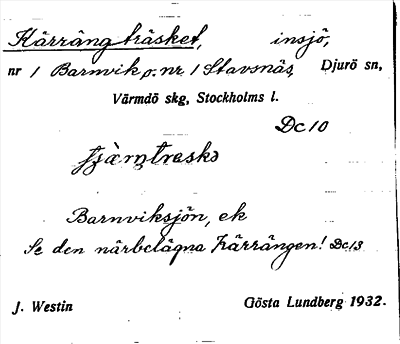 Kärrängträsket, insjö,
nr 1 Barnvik o. nr 1 Stavsnäs, Djurö sn,
Värmdö skg, Stockholms l.
Dc10
Barnviksjön, ek
Se den närbelägna Kärrängen! Dc13
J. Westin Gösta Lundberg 1932.